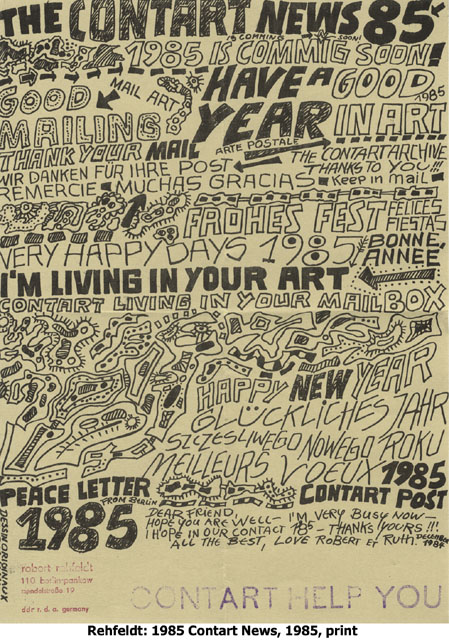 THE CONTART NEWS 85
IS COMMING SOON!
1985 IS COMMIG SOON!
GOOD
MAIL ART
HAVE A GOOD
1985
MAILING
YEAR IN ART
THANK YOUR MAIL
ARTE POSTALE
THE CONTART ARCHIVE
WIR DANKEN FÜR IHRE POST
THANKS TO YOU!!!
REMERCIE MUCHAS GRACIAS
Keep in mail
FROHES FEST
FELICES
FIESTAS
VERY HAPPY DAYS 1985
BONNE
ANNEE
I'M LIVING IN YOUR ART
CONTART LIVING IN YOUR MAILBOX
HAPPY NEW YEAR
GLÜCKLICHES JAHR
SZCZESLIWEGO NOWEGO ROKU
MEILLEURS VOEUX 1985
PEACE LETTER
FROM BERLIN
CONTART POST
1985
DEAR FRIEND,
HOPE YOU ARE WELL – I'M VERY BUSY NOW –
I HOPE IN OUR CONTACT 1985 – THANKS! YOURS!!!
ALL THE BEST, LOVE ROBERT et RUTH. DECEMBER
1984
DESSIN ORIGINAUX
robert rehfeldt
110 berlin-pankow
mendelstraße 19
ddr r. d. a. germany
CONTART HELP YOU
Rehfeldt: 1985 Contart News, 1985, print